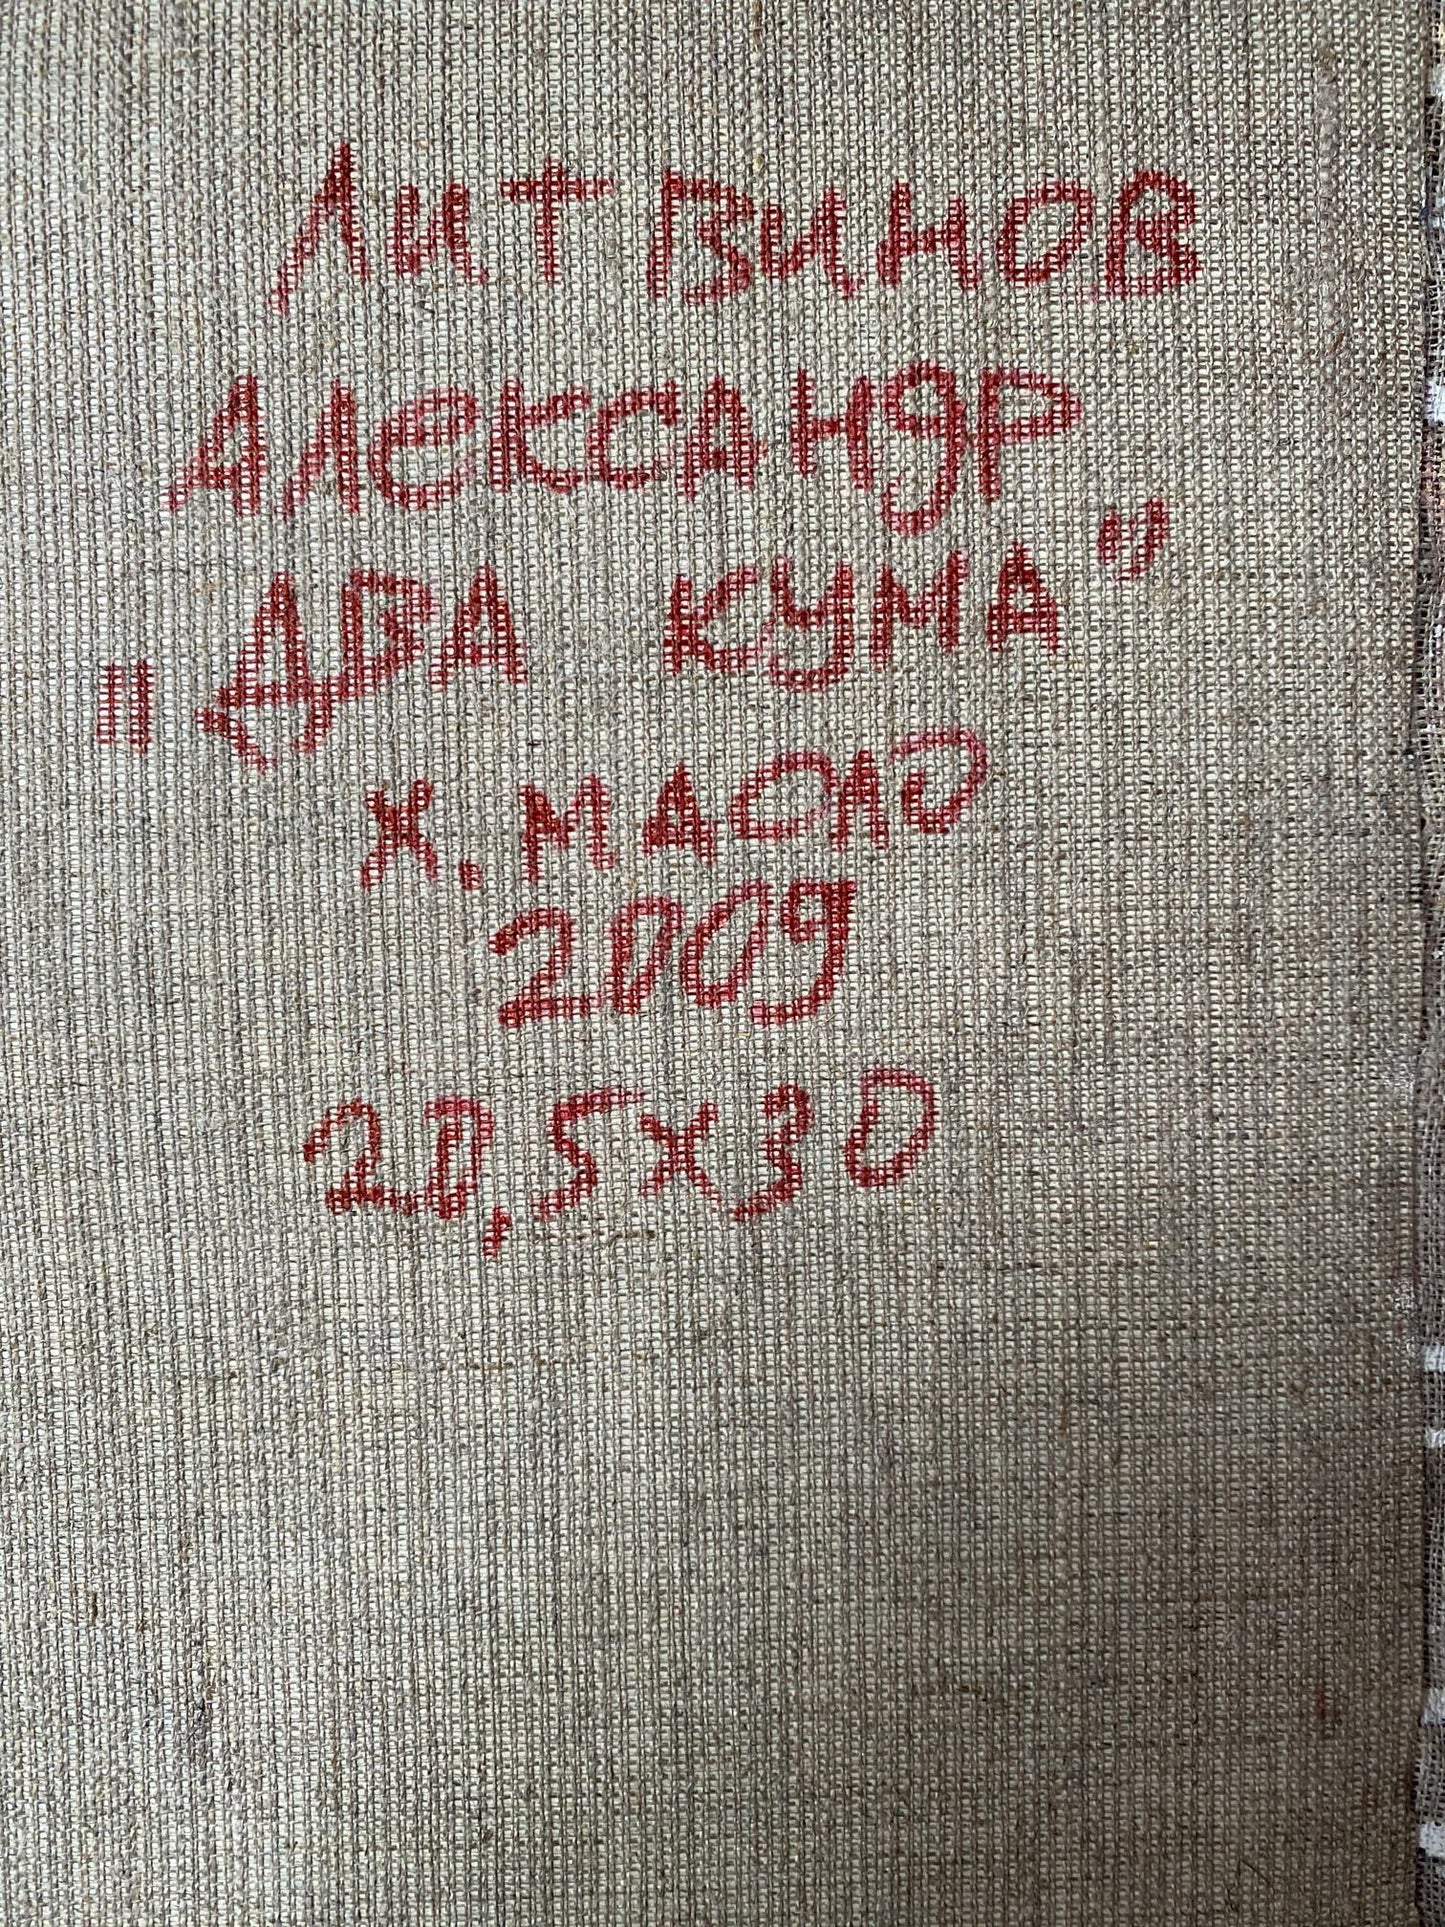 Литвинов
Александр
"Два кума"
х. масло
2009
20,5х30